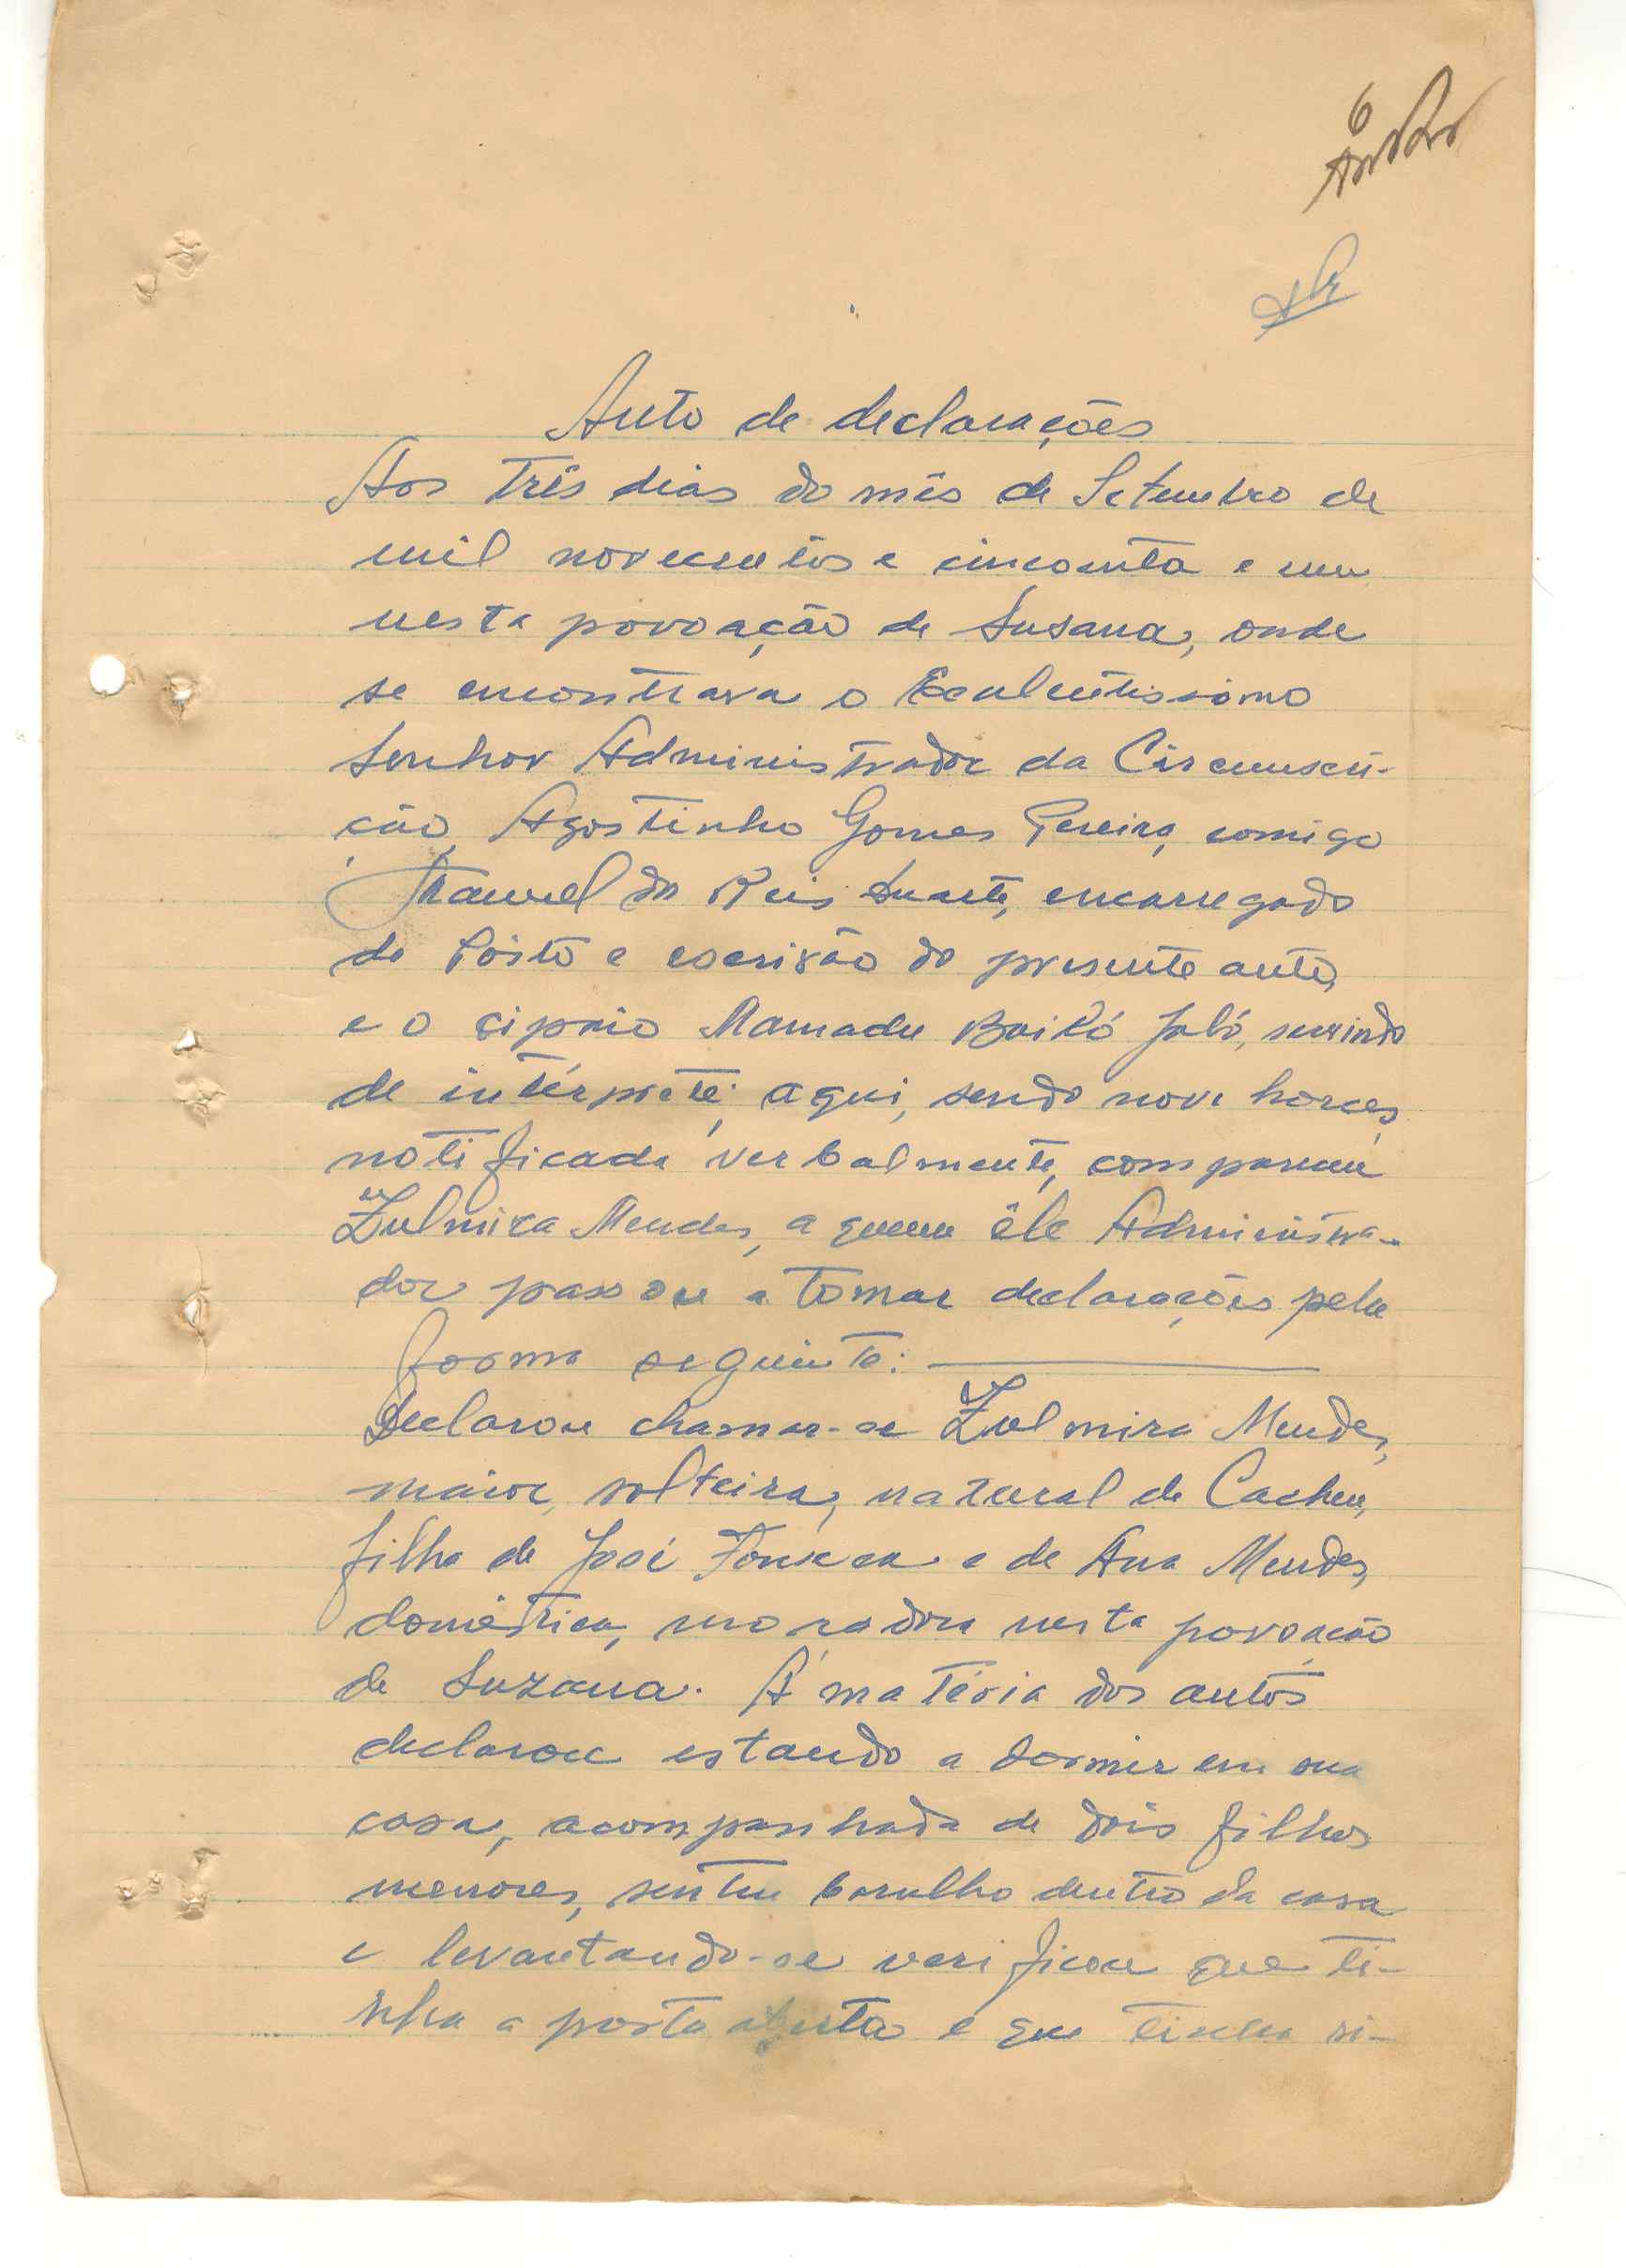 6
Auto de declarações
Aos três dias do mês de Setembro de
mil novecentos e cincoenta e um
nesta povoação de Susana, onde
se encontrava o Excelentissimo
Senhor Administrador da Circunscri-
ção, Agostinho Gomes Pereira, comigo
Manuel dos Reis Duarte, encarregado
do Pôsto e escrivão do presente auto,
e o cipaio Mamadu Bailó Jaló, servindo
de intérprete; aqui, sendo nove horas,
notificada verbalmente, compareceu
Zulmira Mendes, a quem êle Administra-
dor passou a tomar declarações pela
forma seguinte:
Declarou chamar-se Zulmira Mendes,
maior, solteira, natural de Cacheu,
filha de José Fonseca e de Ana Mendes,
doméstica, moradora nesta povoação
de Suzana. Á matéria dos autos
declarou estando a dormir em sua
casa, acompanhada de dois filhos
menores, sentiu barulho dentro da casa
e levantando-se verificou que ti-
nha a porta aberta e que tinha si-